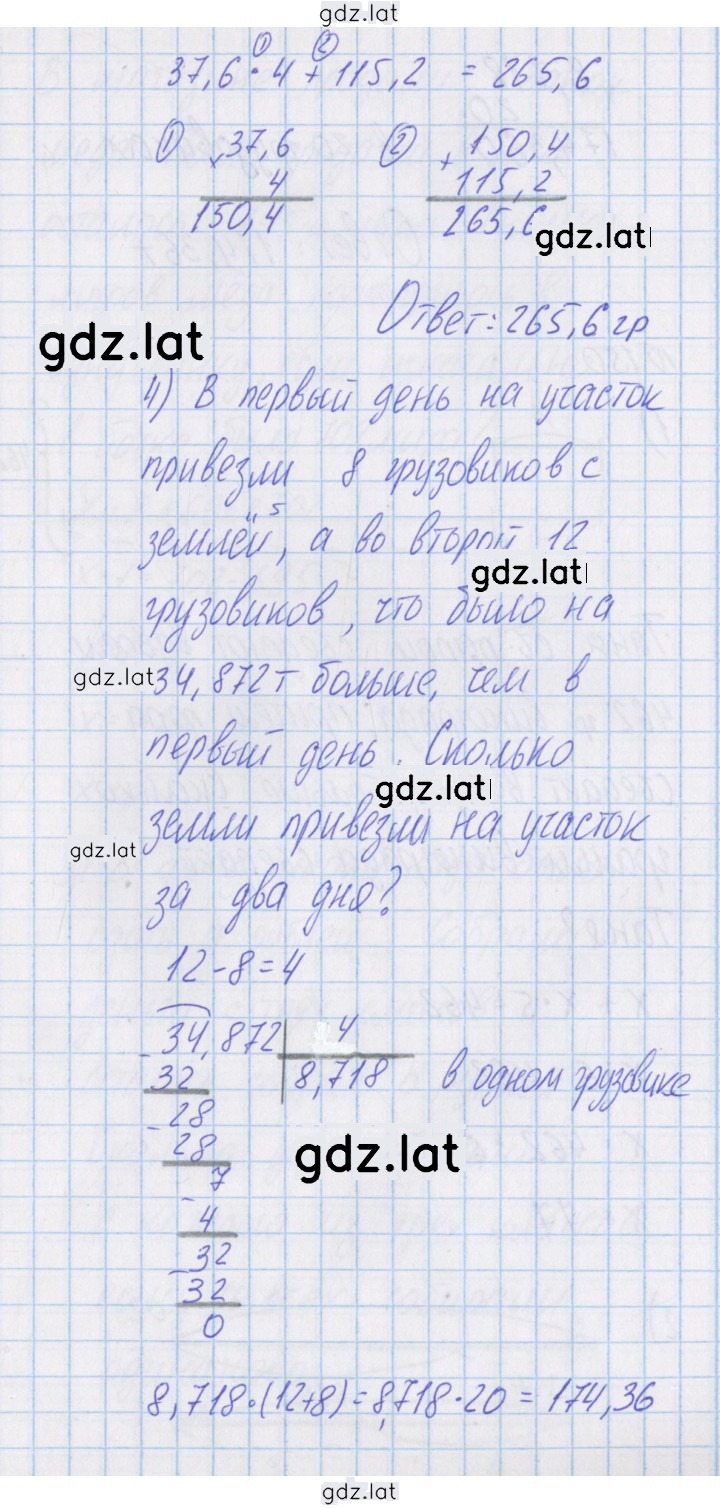 gdz.lat
① ②
37,6 · 4 + 115,2 = 265,6
① × 37,6 ② + 150,4
4 115,2
150,4 265,6
gdz.lat
Ответ: 265,6 гр
gdz.lat
4) В первый день на участок
привезли 8 грузовиков с
землёй, а во второй 12
gdz.lat
грузовиков, что было на
gdz.lat
34,872 т больше, чем в
первый день. Сколько
gdz.lat
земли привезли на участок
gdz.lat
за два дня?
12 - 8 = 4
- 34,872 | 4
32 8,718 в одном грузовике
- 28
28
gdz.lat
- 7
4
- 32
32
0
8,718 · (12+8) = 8,718 · 20 = 174,36
gdz.lat